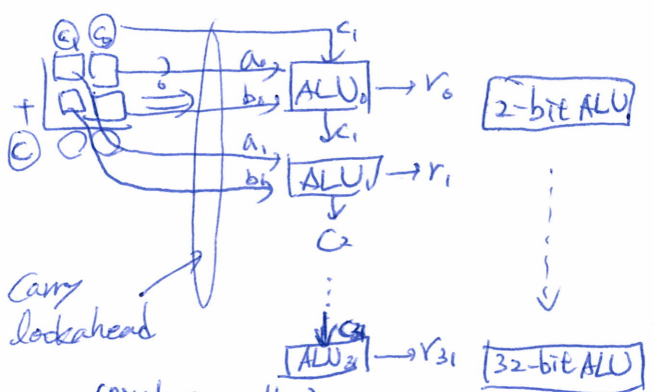 C₁ C₀ C₁
a₀ ALU₀ → r₀
+ b₀ 2-bit ALU
C C₁
a₁ ALU₁ → r₁
b₁
C₂
Carry
lookahead C₃₁
ALU₃₁ → r₃₁ 32-bit ALU